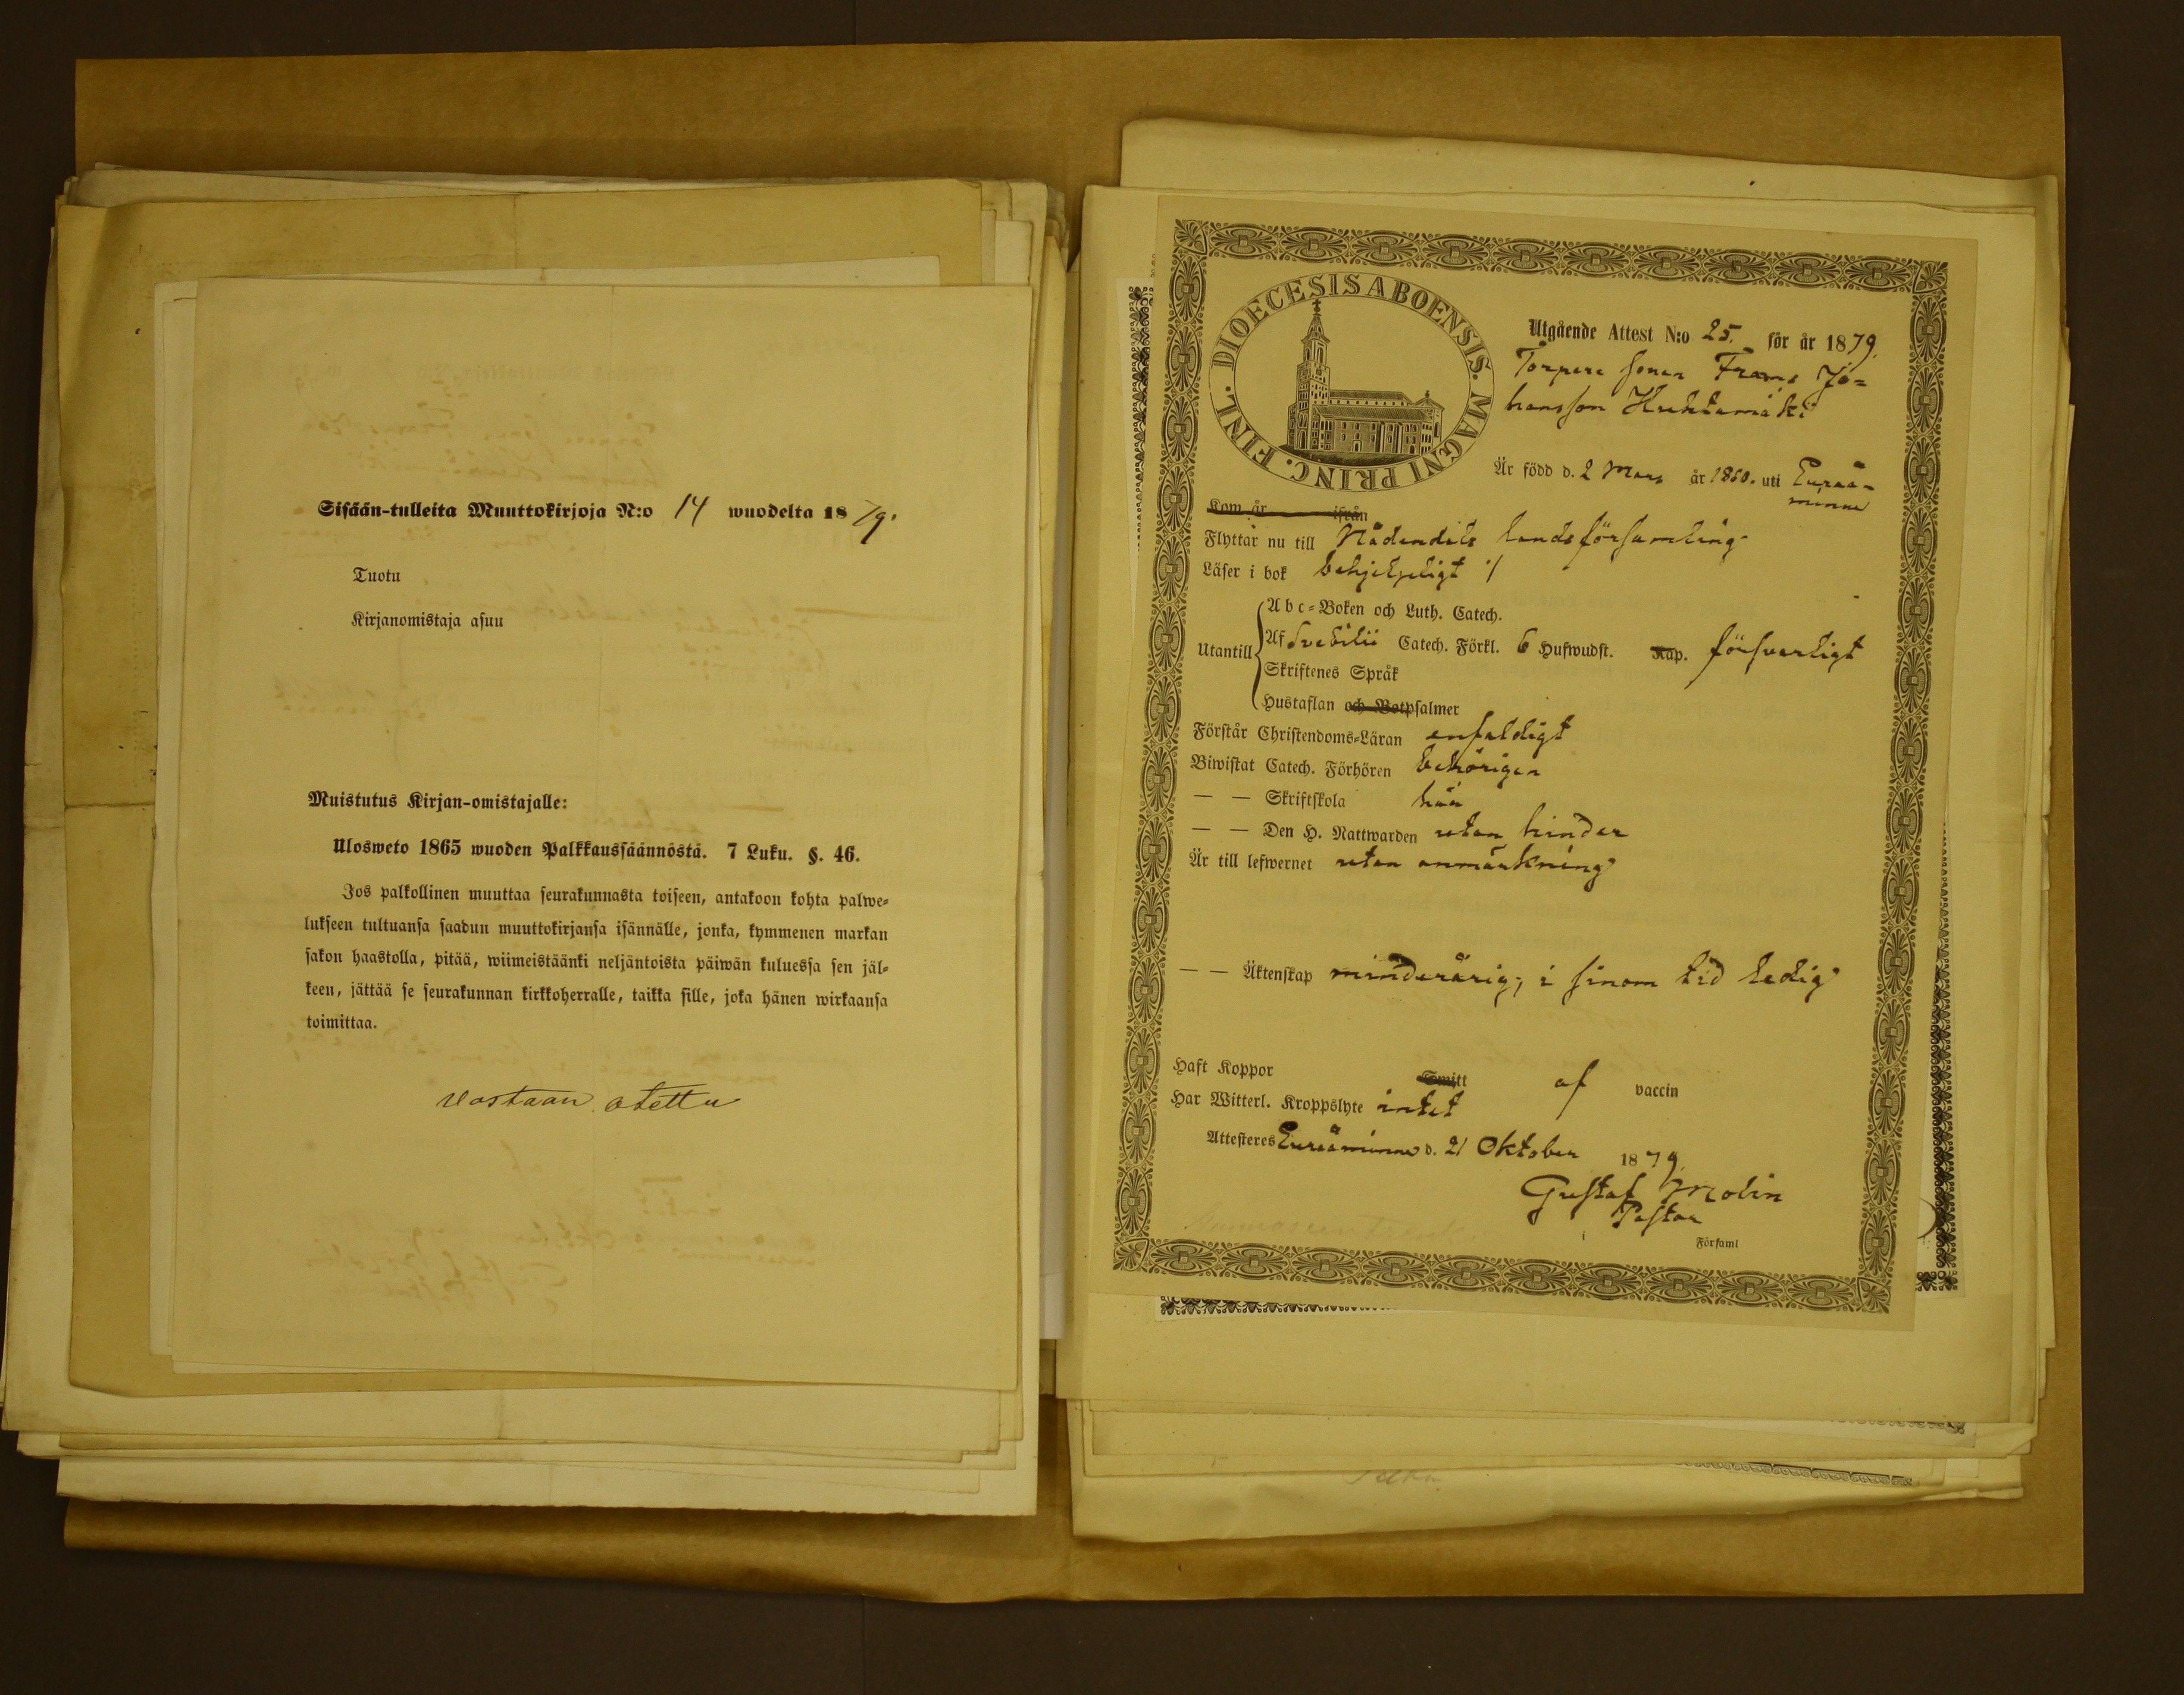 Sisään-tulleita Muuttokirjoja N:o 14 wuodelta 1879.
Tuotu
Kirjanomistaja asuu
Muistutus Kirjan-omistajalle:
Ulosweto 1865 wuoden Palkkaussäännöstä. 7 Luku. §. 46.
Jos palkollinen muuttaa seurakunnasta toiseen, antakoon kohta palwe=
lukseen tultuansa saadun muuttokirjansa isännälle, jonka, kymmenen markan
sakon haastolla, pitää, wiimeistäänki neljäntoista päiwän kuluessa sen jäl=
keen, jättää se seurakunnan kirkkoherralle, taikka sille, joka hänen wirkaansa
toimittaa.
Vastaan otettu
DIOECESIS ABOENSIS. MAGNI PRINC. FINL.
Utgående Attest N:o 25. för år 1879.
Torpare sonen Frans Jo=
hansson Huhtamäki
Är född d. 2 Mars år 1860. uti Euraå=
minne
Kom år ifrån
Flyttar nu till Nådendals landsförsamling
Läser i bok behjelpeligt
Abc=Boken och Luth. Catech.
Utantill Af Svebilii Catech. Förkl. 6 Hufwudst. Kap. försvarligt
Skriftenes Språk
Hustaflan och Botpsalmer
Förstår Christendoms=Läran enfaldigt
Biwistat Catech. Förhören behörigen
— — Skriftskola här
— — Den H. Nattwarden utan hinder
Är till lefwernet utan anmärkning
— — Äktenskap minderårig; i sinom tid ledig
Haft Koppor Smitt af vaccin
Har Witterl. Kroppslyte intet
Attesteres Euraåminne d. 21 Oktober 1879.
Gustaf Molin
Pastor
Församl